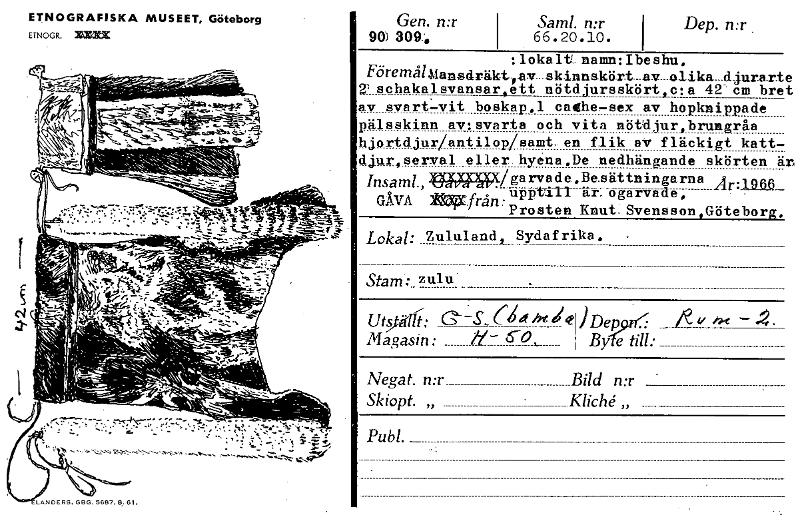 ETNOGRAFISKA MUSEET, Göteborg
ETNOGR.
42 cm
ELANDERS, GBG. 5687. 8. 61.
Gen. n:r Saml. n:r Dep. n:r
90 309. 66.20.10.
:lokalt namn:Ibeshu.
Föremål Mansdräkt,av skinnskört av olika djurarte
2 schakalsvansar,ett nötdjursskört,c:a 42 cm bret
av svart-vit boskap.1 cache-sex av hopknippade
pälsskinn av:svarta och vita nötdjur,brungråa
hjortdjur/antilop/samt en flik av fläckigt katt-
djur,serval eller hyena.De nedhängande skörten är
Insaml., Gåva av:/garvade.Besättningarna År:1966
GÅVA Köp från: upptill är ogarvade.
Prosten Knut Svensson,Göteborg.
Lokal: Zululand, Sydafrika.
Stam: zulu
Utställt: G-S.(bamba) Depon.: Rum-2.
Magasin: H-50. Byte till:
Negat. n:r Bild n:r
Skiopt. „ Kliché „
Publ.